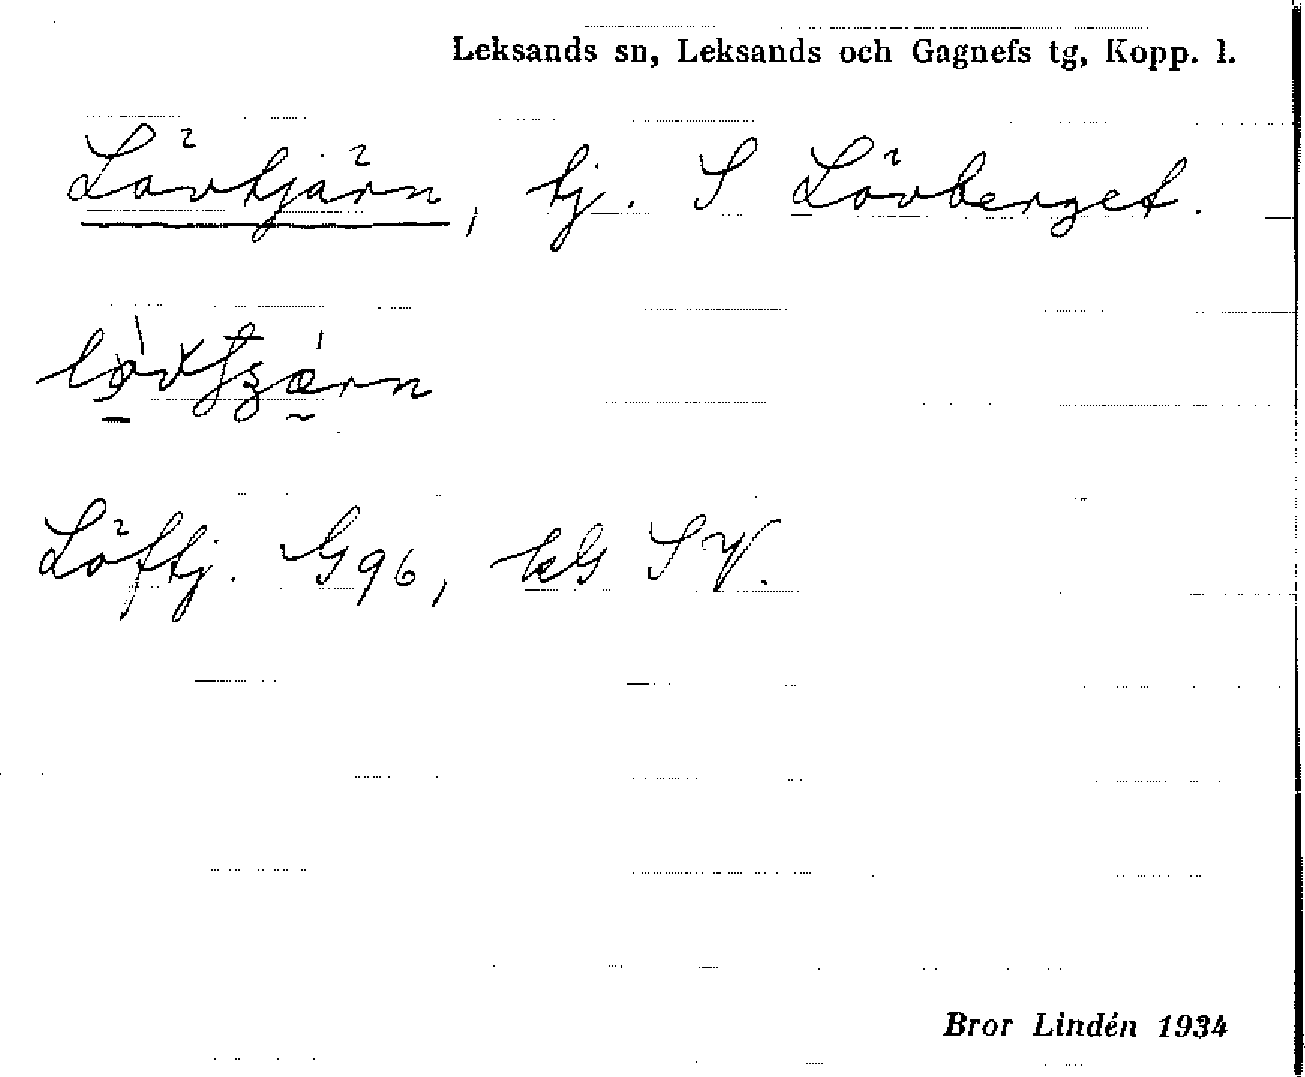 Leksands sn, Leksands och Gagnefs tg, Kopp. l.
Lövtjärn, tj. S Lövberget.
Löftj. G96, kG SV.
Bror Lindén 1934